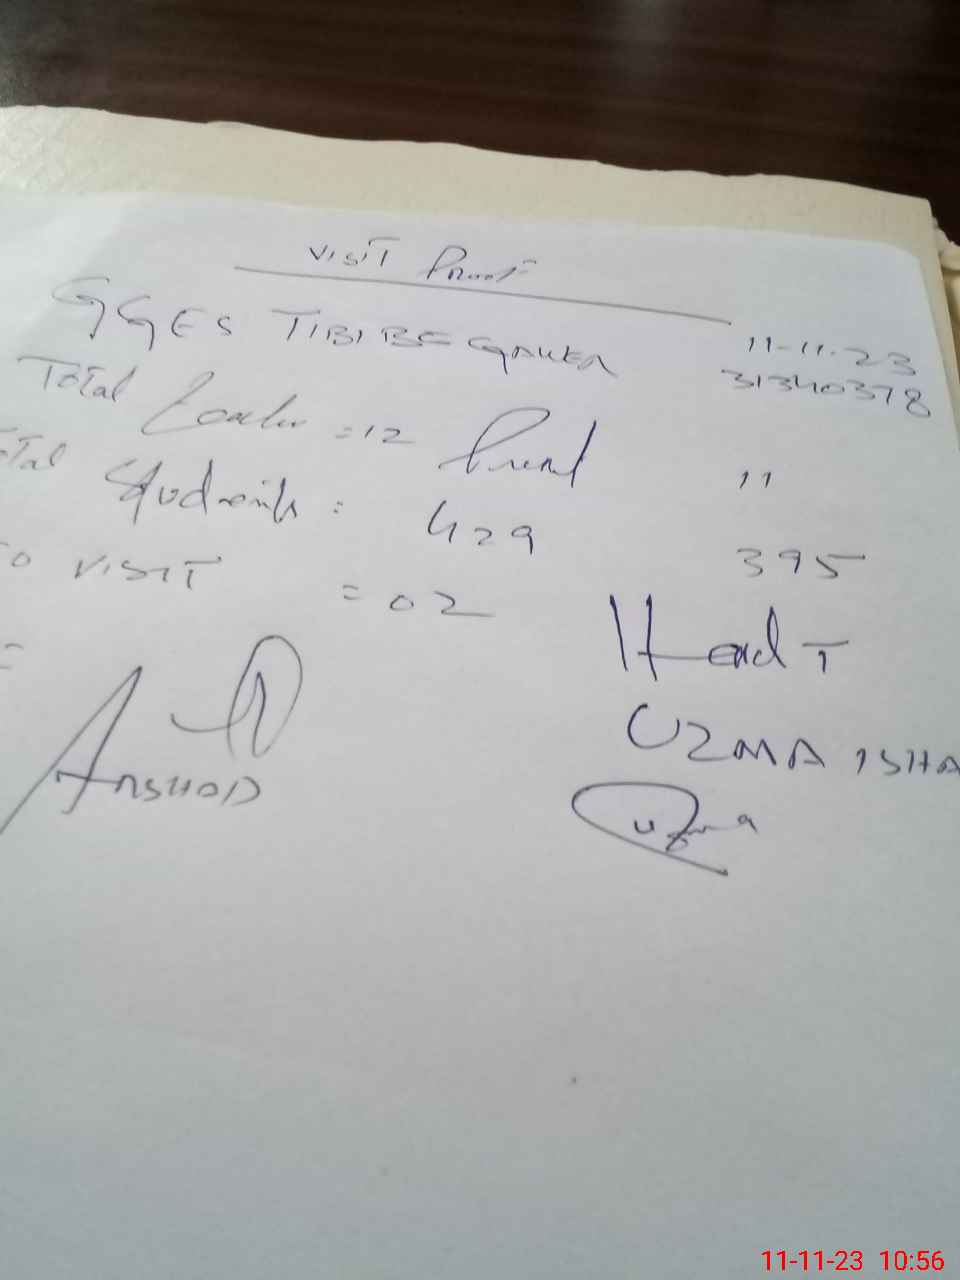 VISIT Proof
GGES TIBI BEGAUKA 11-11-23
31340378
Total Teacher = 12 Present 11
otal Students : 429 395
TO VISIT = 02
Head T
UZMA ISHA
ARSHAD
uzma
11-11-23 10:56